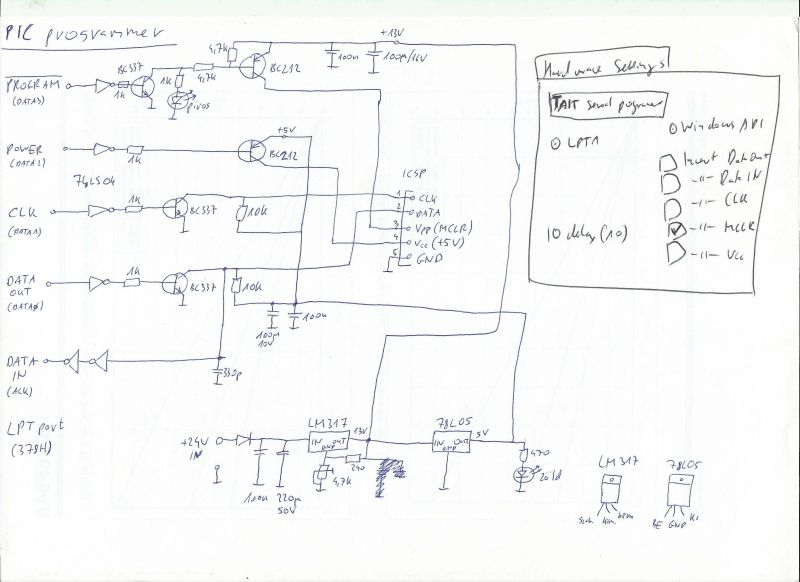 PIC programmer
+13V
4,7k
100n
100µ/16V
BC337
BC212
PROGRAM
(DATA3)
1k
1k
4,7k
piros
+5V
POWER
(DATA2)
1k
BC212
74LS04
ICSP
CLK
(DATA1)
1k
BC337
10k
1 CLK
2 DATA
3 VPP (MCLR)
4 Vcc (+5V)
5 GND
DATA
OUT
(DATA0)
1k
BC337
10k
100µ
10V
100n
DATA
IN
(ACK)
330p
LPT port
(378H)
+24V
IN
LM317
IN OUT
13V
78L05
IN OUT
GND
5V
100n
220µ
50V
4,7k
240
470
zöld
Hardware Settings
TAIT serial programer
LPT1
Windows API
Invert Data Out
-"- Data IN
-"- CLK
-"- MCLR
-"- Vcc
10 delay (10)
LM317
78L05
BE GND KI